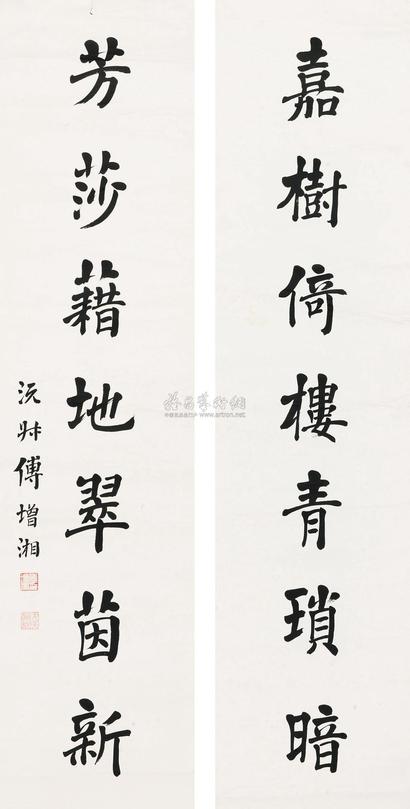 嘉樹倚樓青瑣暗
芳莎藉地翠茵新
沅尗傅增湘
www.artron.net